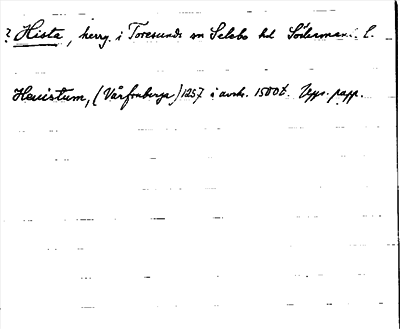 ? Hista, herrg. i Toresunds sn Selebo hd Söderman. l.
Heuistum, (Vårfruberga) 1257 i avskr. 1500 t. Upps. papp.